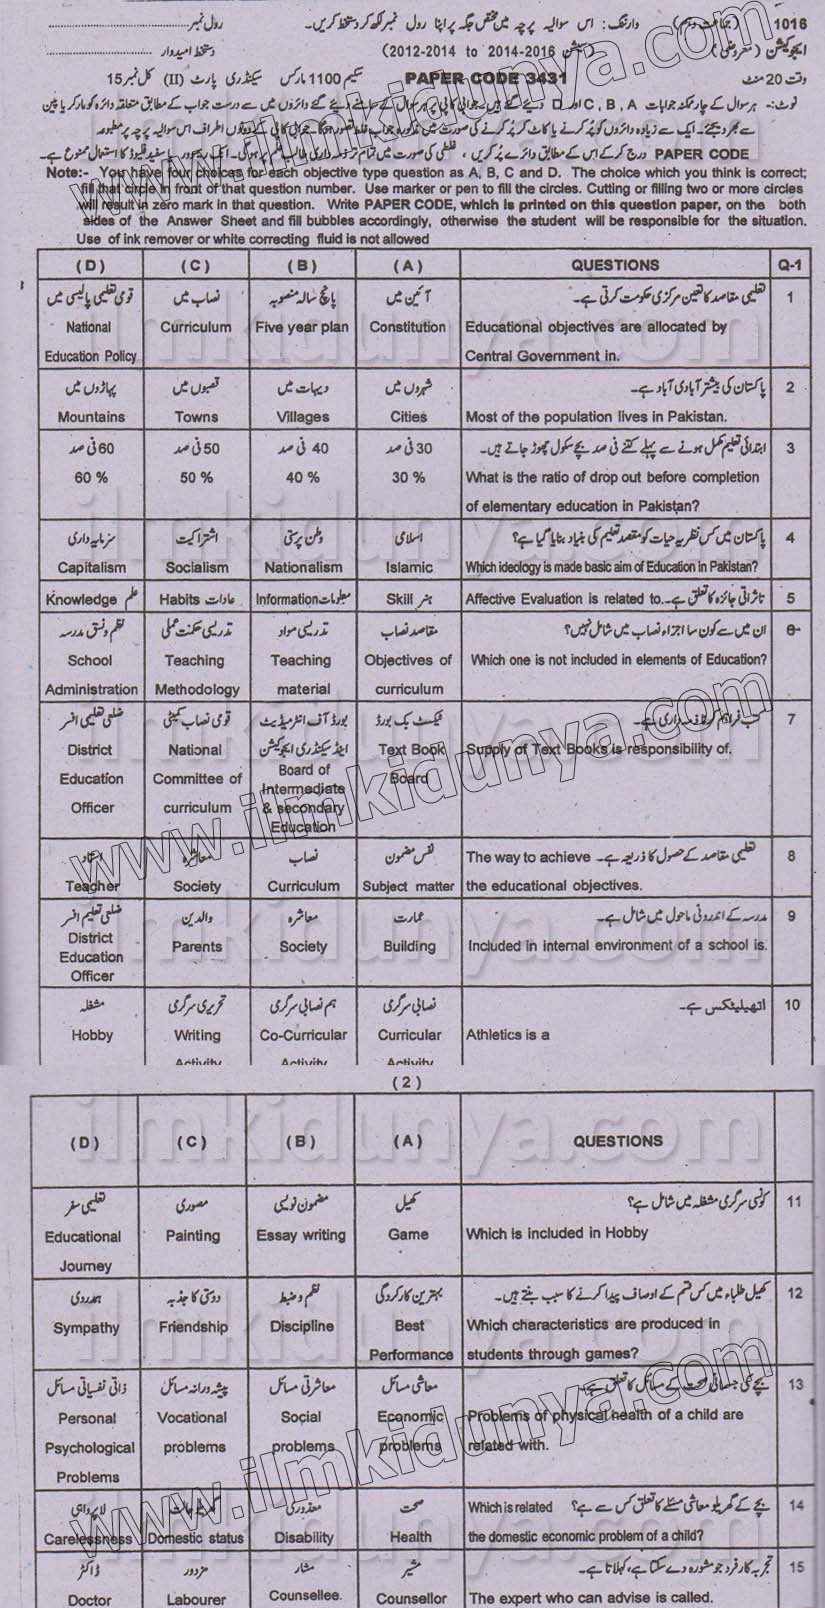 1016 (جماعت دہم) وارننگ: اس سوالیہ پرچہ میں مختص جگہ پر اپنا رول نمبر لکھ کر دستخط کریں۔ رول نمبر
ایجوکیشن (معروضی) (سیشن 2014-2016 to 2012-2014) دستخط امیدوار
وقت 20 منٹ PAPER CODE 3431 سکیم 1100 مارکس سیکنڈری پارٹ (II) کل نمبر 15
نوٹ:- ہر سوال کے چار ممکنہ جوابات A ,B ,C اور D دیئے گئے ہیں، جوابی کاپی پر ہر سوال کے سامنے دیئے گئے دائروں میں سے درست جواب کے مطابق متعلقہ دائرہ کو مارکر یا پین
سے بھر دیجئے۔ ایک سے زیادہ دائروں کو پُر کرنے یا کاٹ کر پُر کرنے کی صورت میں مذکورہ جواب غلط تصور ہو گا۔ جوابی کاپی کے دونوں اطراف اس سوالیہ پرچہ پر مطبوعہ
PAPER CODE درج کر کے اس کے مطابق دائرے پُر کریں، غلطی کی صورت میں تمام تر ذمہ داری طالب علم پر ہو گی۔ انک ریموور یا سفید فلیوڈ کا استعمال ممنوع ہے۔
Note:- You have four choices for each objective type question as A, B, C and D. The choice which you think is correct;
fill that circle in front of that question number. Use marker or pen to fill the circles. Cutting or filling two or more circles
will result in zero mark in that question. Write PAPER CODE, which is printed on this question paper, on the both
sides of the Answer Sheet and fill bubbles accordingly, otherwise the student will be responsible for the situation.
Use of ink remover or white correcting fluid is not allowed
(D) (C) (B) (A) QUESTIONS Q-1
قومی تعلیمی پالیسی میں نصاب میں پانچ سالہ منصوبہ آئین میں تعلیمی مقاصد کا تعین مرکزی حکومت کرتی ہے۔ 1
National Curriculum Five year plan Constitution Educational objectives are allocated by
Education Policy Central Government in.
پہاڑوں میں قصبوں میں دیہات میں شہروں میں پاکستان کی بیشتر آبادی آباد ہے۔ 2
Mountains Towns Villages Cities Most of the population lives in Pakistan.
60 فی صد 50 فی صد 40 فی صد 30 فی صد ابتدائی تعلیم مکمل ہونے سے پہلے کتنے فی صد بچے سکول چھوڑ جاتے ہیں۔ 3
60 % 50 % 40 % 30 % What is the ratio of drop out before completion
of elementary education in Pakistan?
سرمایہ داری اشتراکیت وطن پرستی اسلامی پاکستان میں کس نظریہ حیات کو مقصد تعلیم کی بنیاد بنایا گیا ہے؟ 4
Capitalism Socialism Nationalism Islamic Which ideology is made basic aim of Education in Pakistan?
Knowledge علم Habits عادات Information معلومات Skill ہنر Affective Evaluation is related to. تاثراتی جائزہ کا تعلق ہے۔ 5
نظم و نسق مدرسہ تدریسی حکمت عملی تدریسی مواد مقاصد نصاب ان میں سے کون سا اجزاء نصاب میں شامل نہیں؟ 6
School Teaching Teaching Objectives of Which one is not included in elements of Education?
Administration Methodology material curriculum
ضلعی تعلیمی افسر قومی نصاب کمیٹی بورڈ آف انٹرمیڈیٹ ٹیکسٹ بک بورڈ کتب فراہم کرنا ذمہ داری ہے۔ 7
District National اینڈ سیکنڈری ایجوکیشن Text Book Supply of Text Books is responsibility of.
Education Committee of Board of Board
Officer curriculum Intermediate
& secondary
Education
استاد معاشرہ نصاب نفس مضمون The way to achieve تعلیمی مقاصد کے حصول کا ذریعہ ہے۔ 8
Teacher Society Curriculum Subject matter the educational objectives.
ضلعی تعلیم افسر والدین معاشرہ عمارت مدرسہ کے اندرونی ماحول میں شامل ہے۔ 9
District Parents Society Building Included in internal environment of a school is.
Education
Officer
مشغلہ تحریری سرگرمی ہم نصابی سرگرمی نصابی سرگرمی اتھیلیٹکس ہے۔ 10
Hobby Writing Co-Curricular Curricular Athletics is a
Activity Activity Activity
(2)
(D) (C) (B) (A) QUESTIONS
تعلیمی سفر مصوری مضمون نویسی کھیل کونسی سرگرمی مشغلہ میں شامل ہے؟ 11
Educational Painting Essay writing Game Which is included in Hobby
Journey
ہمدردی دوستی کا جذبہ نظم و ضبط بہترین کارکردگی کھیل طلباء میں کس قسم کے اوصاف پیدا کرنے کا سبب بنتے ہیں۔ 12
Sympathy Friendship Discipline Best Which characteristics are produced in
Performance students through games?
ذاتی نفسیاتی مسائل پیشہ ورانہ مسائل معاشرتی مسائل معاشی مسائل بچے کی جسمانی صحت کے مسائل کا تعلق ہے۔ 13
Personal Vocational Social Economic Problems of physical health of a child are
Psychological problems problems problems related with.
Problems
لاپرواہی گھریلو حالت معذوری صحت Which is related بچے کے گھریلو معاشی مسئلے کا تعلق کس سے ہے؟ 14
Carelessness Domestic status Disability Health the domestic economic problem of a child?
ڈاکٹر مزدور مشار مشیر تجربہ کار فرد جو مشورہ دے سکتا ہے، کہلاتا ہے۔ 15
Doctor Labourer Counsellee. Counsellor The expert who can advise is called.
www.ilmkidunya.com
ilmkidunya.com